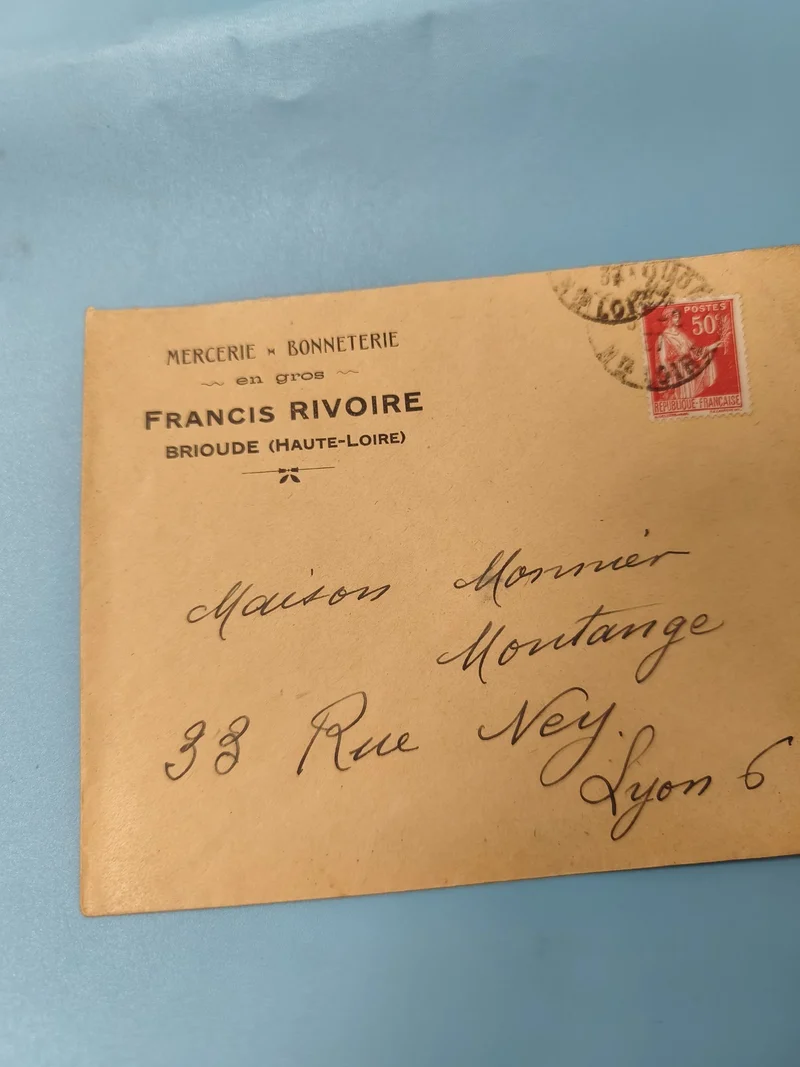 MERCERIE » BONNETERIE
en gros
FRANCIS RIVOIRE
BRIOUDE (HAUTE-LOIRE)
POSTES
50c
REPUBLIQUE-FRANCAISE
Maison Monnier
Montange
33 Rue Ney.
Lyon 6